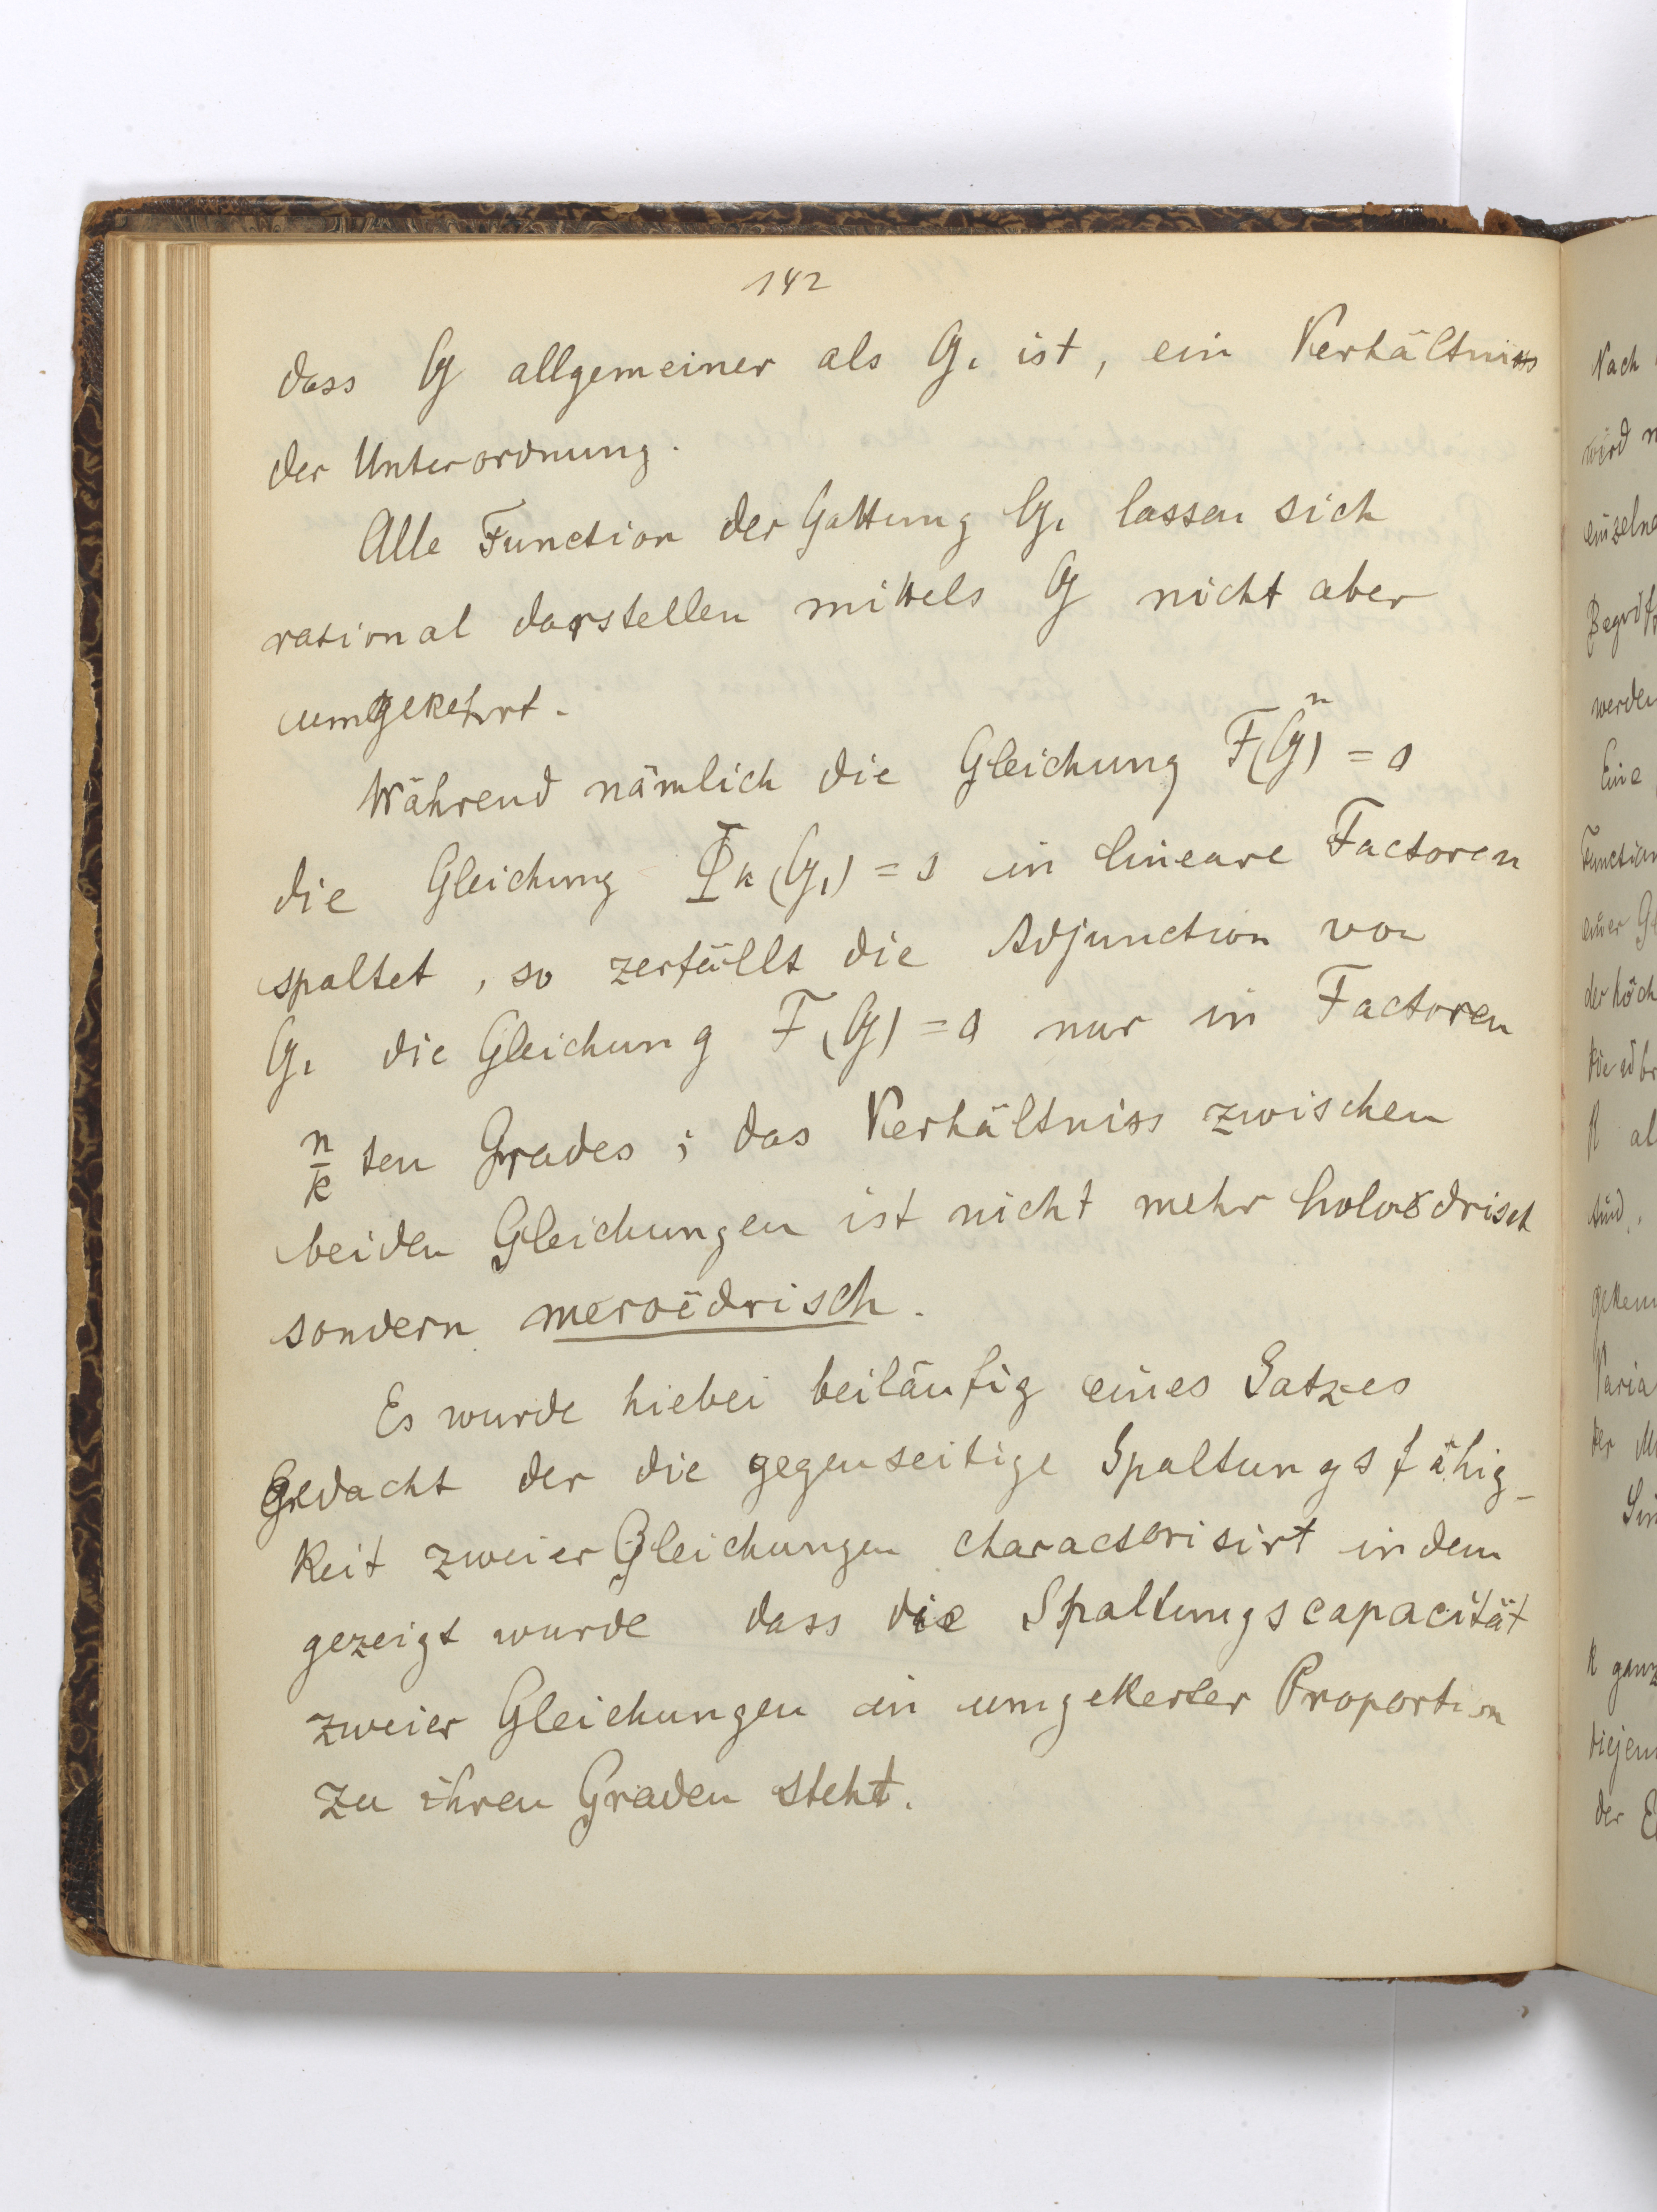 142
dass G allgemeiner als G₁ ist, ein Verhältniss
der Unterordnung.
Alle Function der Gattung G₁ lassen sich
rational darstellen mittels G nicht aber
umgekehrt.
Während nämlich die Gleichung F(Gⁿ) = 0
die Gleichung Φk (G₁) = 0 in lineare Factoren
spaltet, so zerfällt die Adjunction von
G₁ die Gleichung F(G) = 0 nur in Factoren
n/k ten Grades; das Verhältniss zwischen
beiden Gleichungen ist nicht mehr holoëdrisch
sondern meroëdrisch.
Es wurde hiebei beiläufig eines Satzes
Gedacht der die gegenseitige Spaltungsfähig-
keit zweier Gleichungen characterisirt indem
gezeigt wurde dass die Spaltungscapacität
zweier Gleichungen in umgekerter Proportion
zu ihren Graden steht.
Nach
wird
einzelne
werden
Eine
Function
einer
der höch
al
sind,
Varia
der
k ganz
diejen
der E